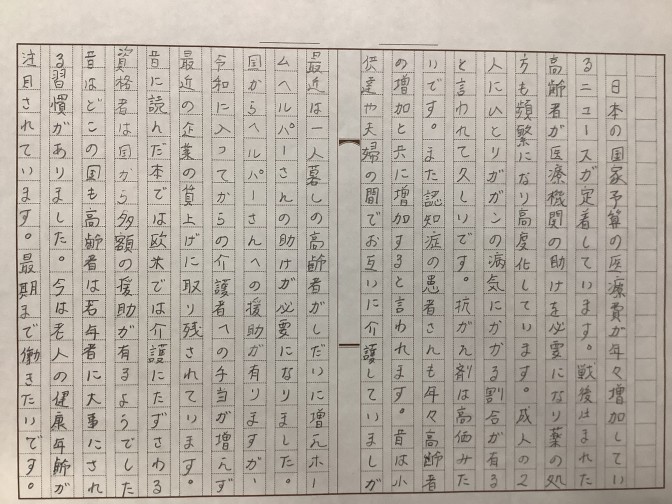 日本の国家予算の医療費が年々増加してい
るニュースが定着しています。戦後はまれた
高齢者が医療機関の助けを必要になり薬の処
方も頻繁になり高度化しています。成人の2
人にひとりがガンの病気にかかる割合が有る
と言われて久しいです。抗がん剤は高価みた
いです。また認知症の患者さんも年々高齢者
の増加と共に増加すると言われます。昔は小
供達や夫婦の間でお互いに介護していましが
最近は一人暮しの高齢者がしだいに増えホー
ムヘルパーさんの助けが必要になりました。
国からヘルパーさんへの援助が有りますが、
令和に入ってからの介護者への手当が増んず
最近の企業の賃上げに取り残されています。
昔に読んだ本では欧米では介護にたずさわる
資格者は国から多額の援助が有るようでした
昔はどこの国も高齢者は若年者に大事にされ
る習慣がありました。今は老人の健康年齢が
注目されています。最期まで働きたいです。